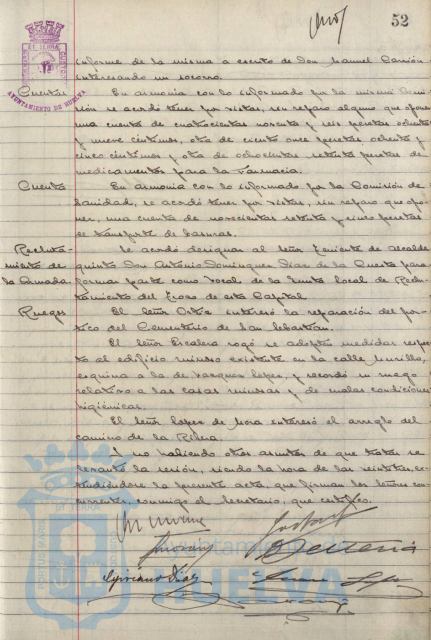 52
informe de la misma a escrito de Don Manuel Carrión
interesando un socorro.
Cuentas En armonia con lo informado por la misma Comi-
sión se acordó tener por vistas, sin reparo alguno que oponer
una cuenta de cuatrocientas noventa y seis pesetas ochenta
y nueve céntimos, otra de ciento once pesetas ochenta y
cinco céntimos y otra de ochocientas setenta pesetas de
medicamentos para la Farmacia.
Cuenta En armonia con lo informado por la Comisión de
Sanidad, se acordó tener por vista, sin reparo que opo-
ner, una cuenta de novecientas setenta y cinco pesetas
de transporte de basuras.
Recluta- Se acordó designar al Señor Teniente de Alcalde
miento de quinto Don Antonio Dominguez Diaz de la Cuesta para
la Armada. formar parte como Vocal de la Junta local de Reclu-
tamiento del Trozo de esta Capital.
Ruegos El Señor Ortiz interesó la reparación del pór-
tico del Cementerio de San Sebastián.
El Señor Escalera rogó se adopten medidas respec-
to al edificio ruinoso existente en la calle Murillo,
esquina a la de Vazquez Lopez, y recordó su ruego
relativo a las casas ruinosas y de malas condiciones
higiénicas.
El Señor Lopez de Mora interesó el arreglo del
camino de la Ribera.
Y no habiendo otros asuntos de que tratar se
levantó la sesión, siendo la hora de las veintitres, ex-
tendiéndose la presente acta, que firman los Señores con-
currentes, conmigo el Secretario, que certifico.
Cipriano Diaz
AYUNTAMIENTO DE HUELVA
Ayuntamiento de
HUELVA